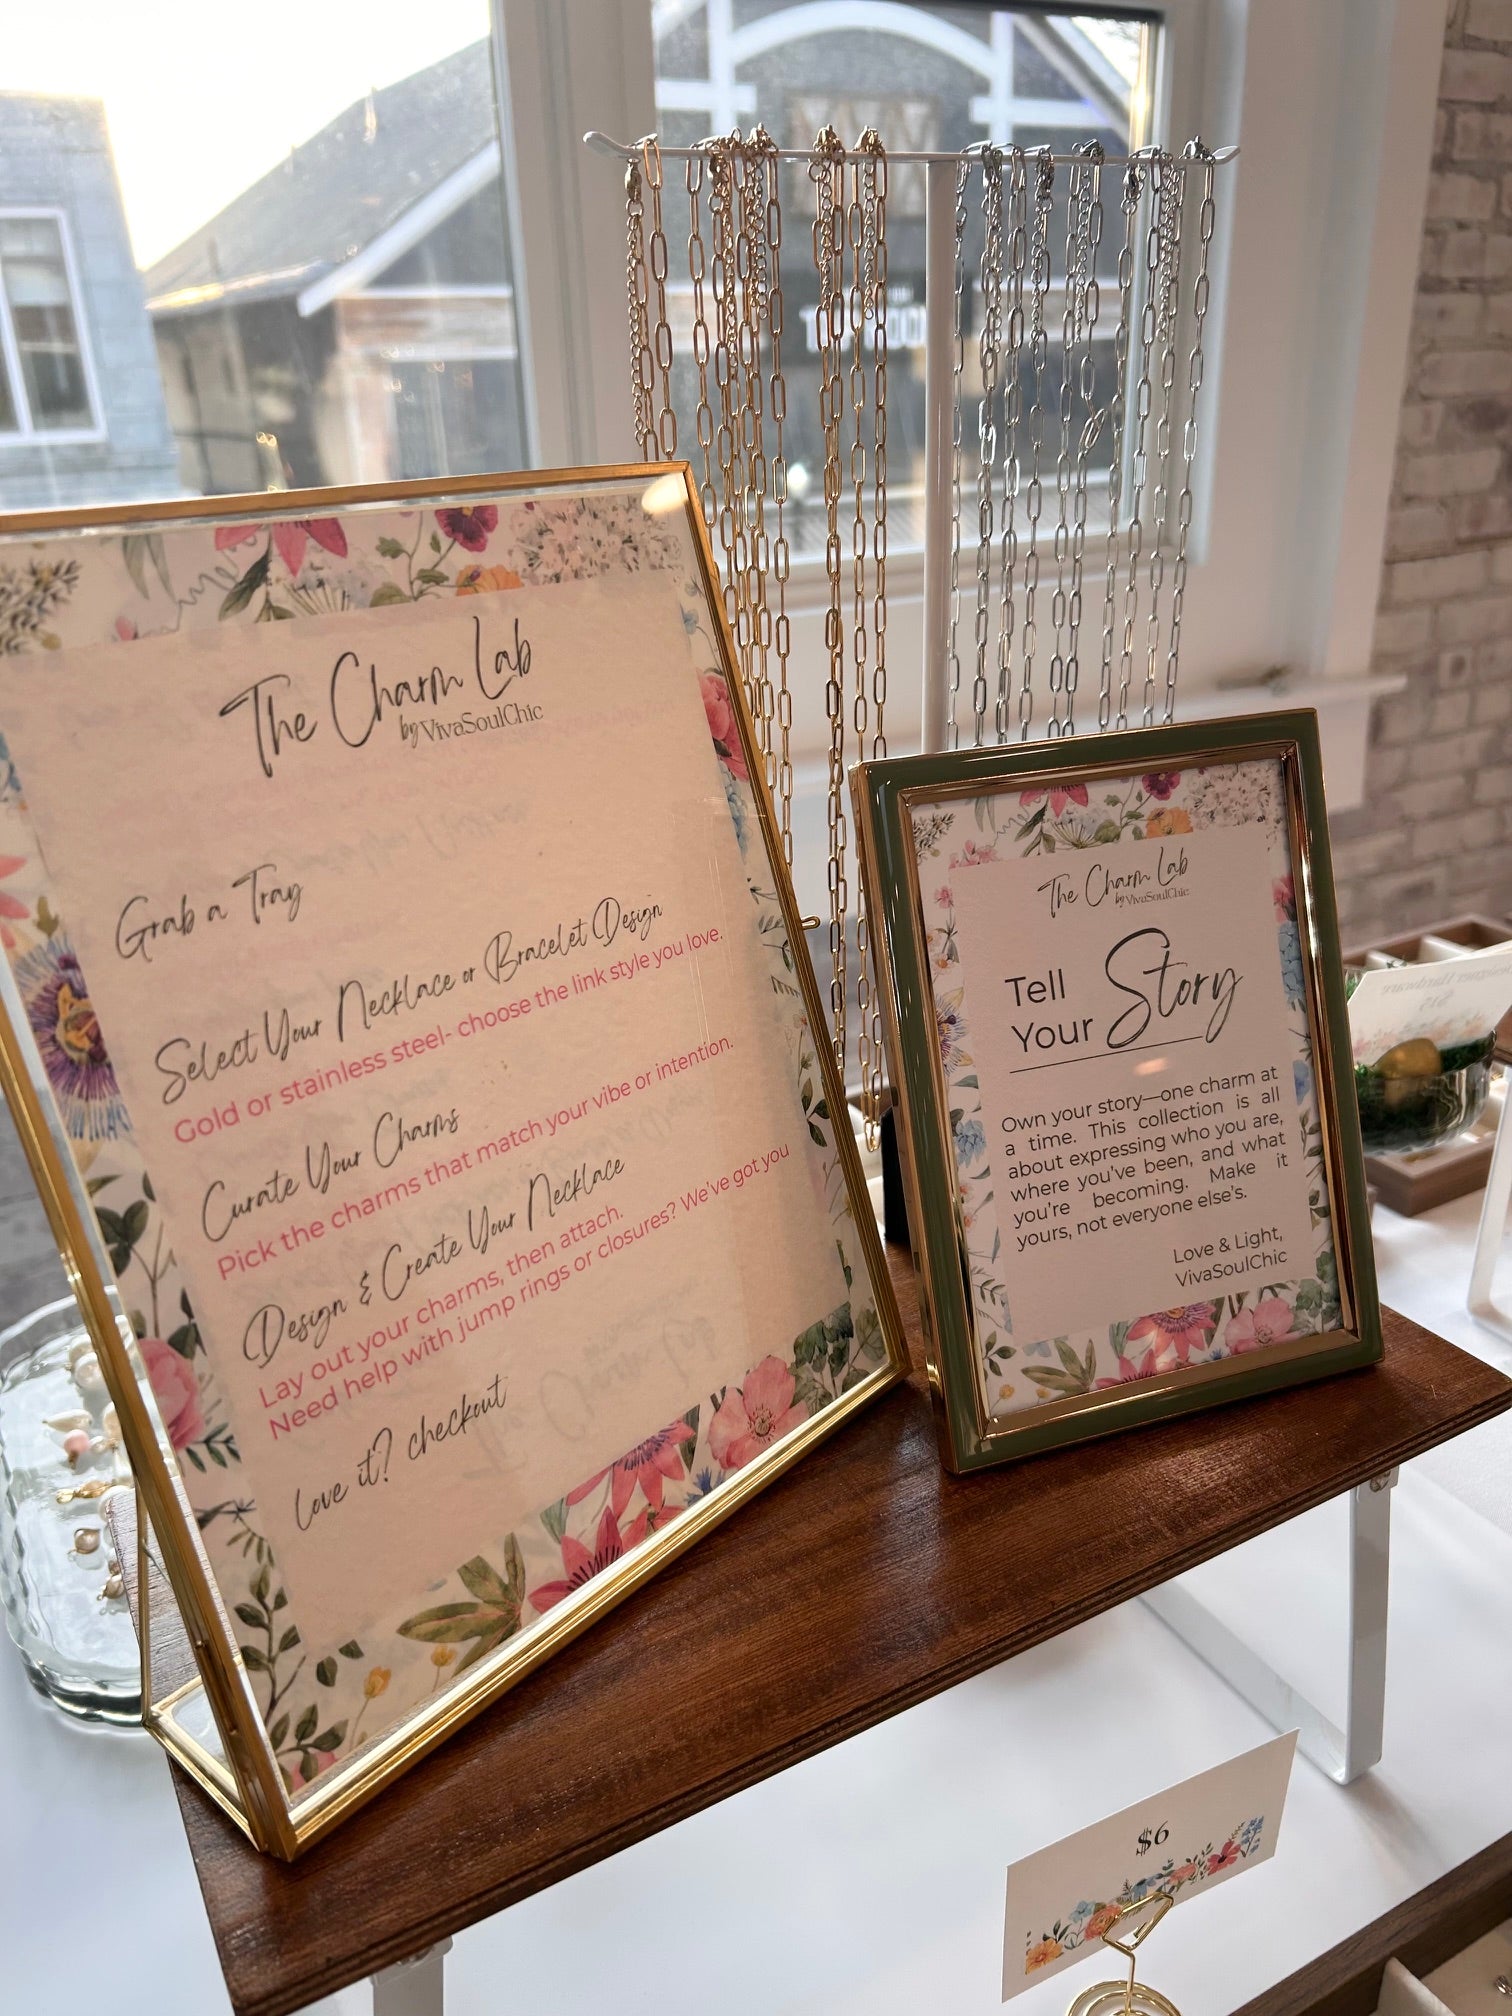 The Charm Lab
by VivaSoulChic
Grab a Tray
Select Your Necklace or Bracelet Design
Gold or stainless steel- choose the link style you love.
Curate Your Charms
Pick the charms that match your vibe or intention.
Design & Create Your Necklace
Lay out your charms, then attach.
Need help with jump rings or closures? We've got you
love it? checkout
The Charm Lab
by VivaSoulChic
Tell
Your Story
Own your story—one charm at
a time. This collection is all
about expressing who you are,
where you've been, and what
you're becoming. Make it
yours, not everyone else's.
Love & Light,
VivaSoulChic
$15
$6